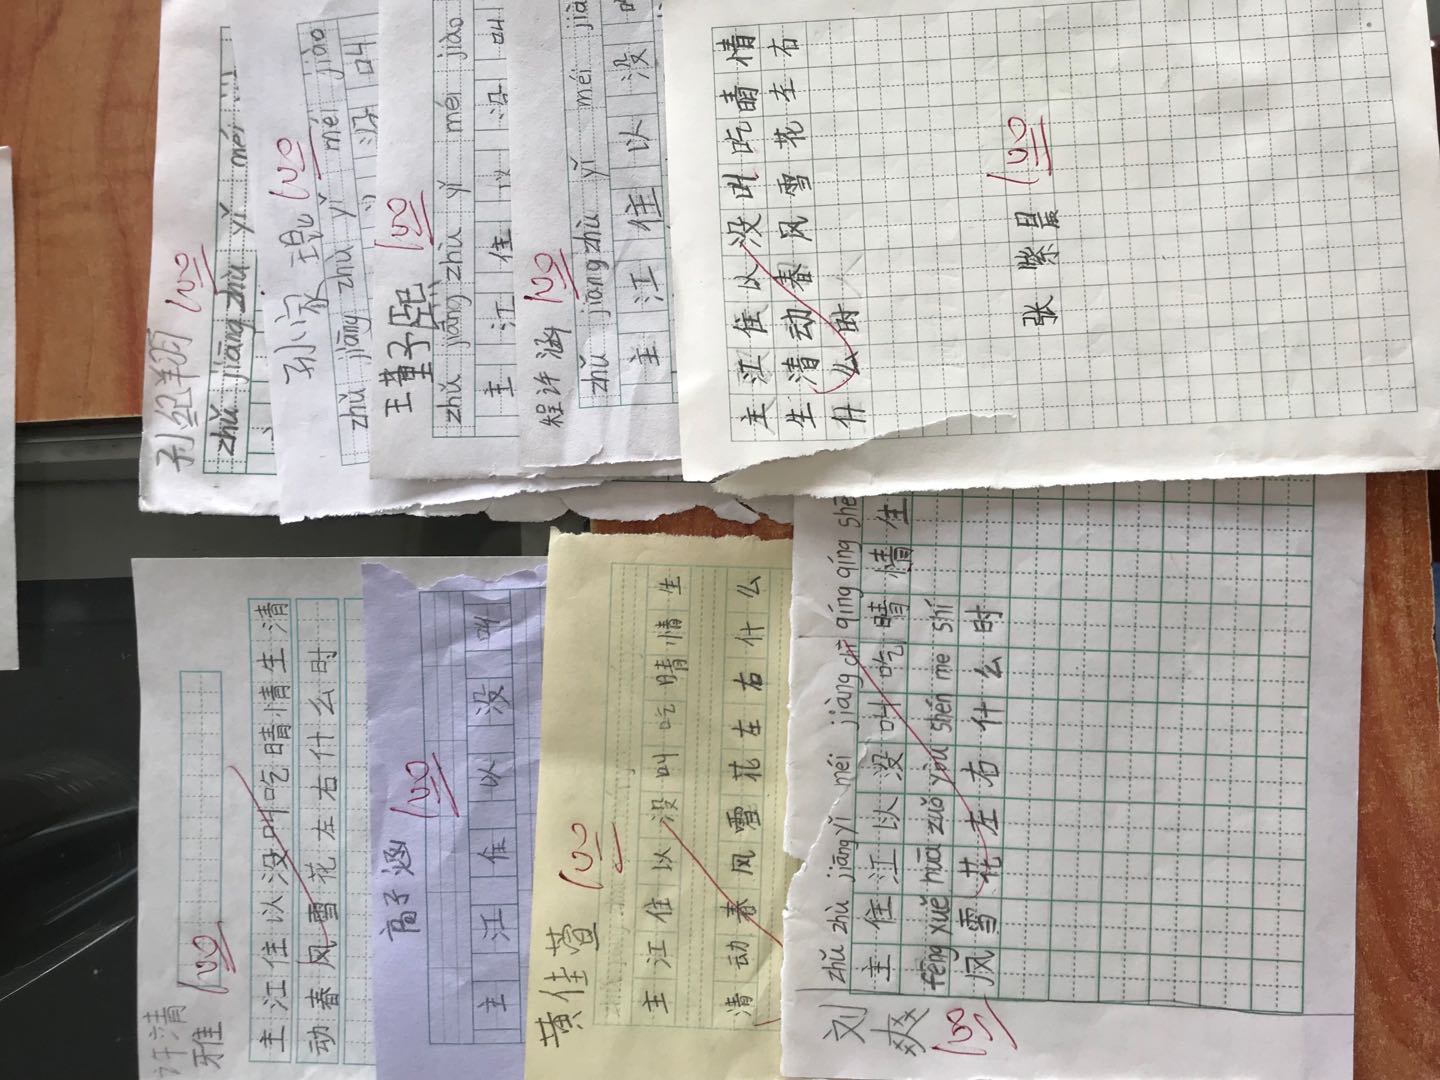 许清雅
100
主江住以没叫吃晴情生清
动春风雪花左右什么时
高子涵
100
主江住以没叫
黄佳萱
100
主江住以没叫吃晴情生
清动春风雪花左右什么
刘爽
100
zhǔ zhù jiāng yǐ méi jiàng chī qíng qíng shē
主住江以没叫吃晴情生
fēng xuě huā zuǒ yòu shén me shí
风雪花左右什么时
100
zhǔ jiāng zhù yǐ méi
孙家琨
100
zhǔ jiāng zhù yǐ méi jiào
没叫
王董子熙
100
zhǔ jiāng zhù yǐ méi jiào
主江住以没叫
程许涵
100
zhǔ jiāng zhù yǐ méi jià
主江住以没
主江住以没叫吃晴情
生清动春风雪花左右
什么时
张紫星
100